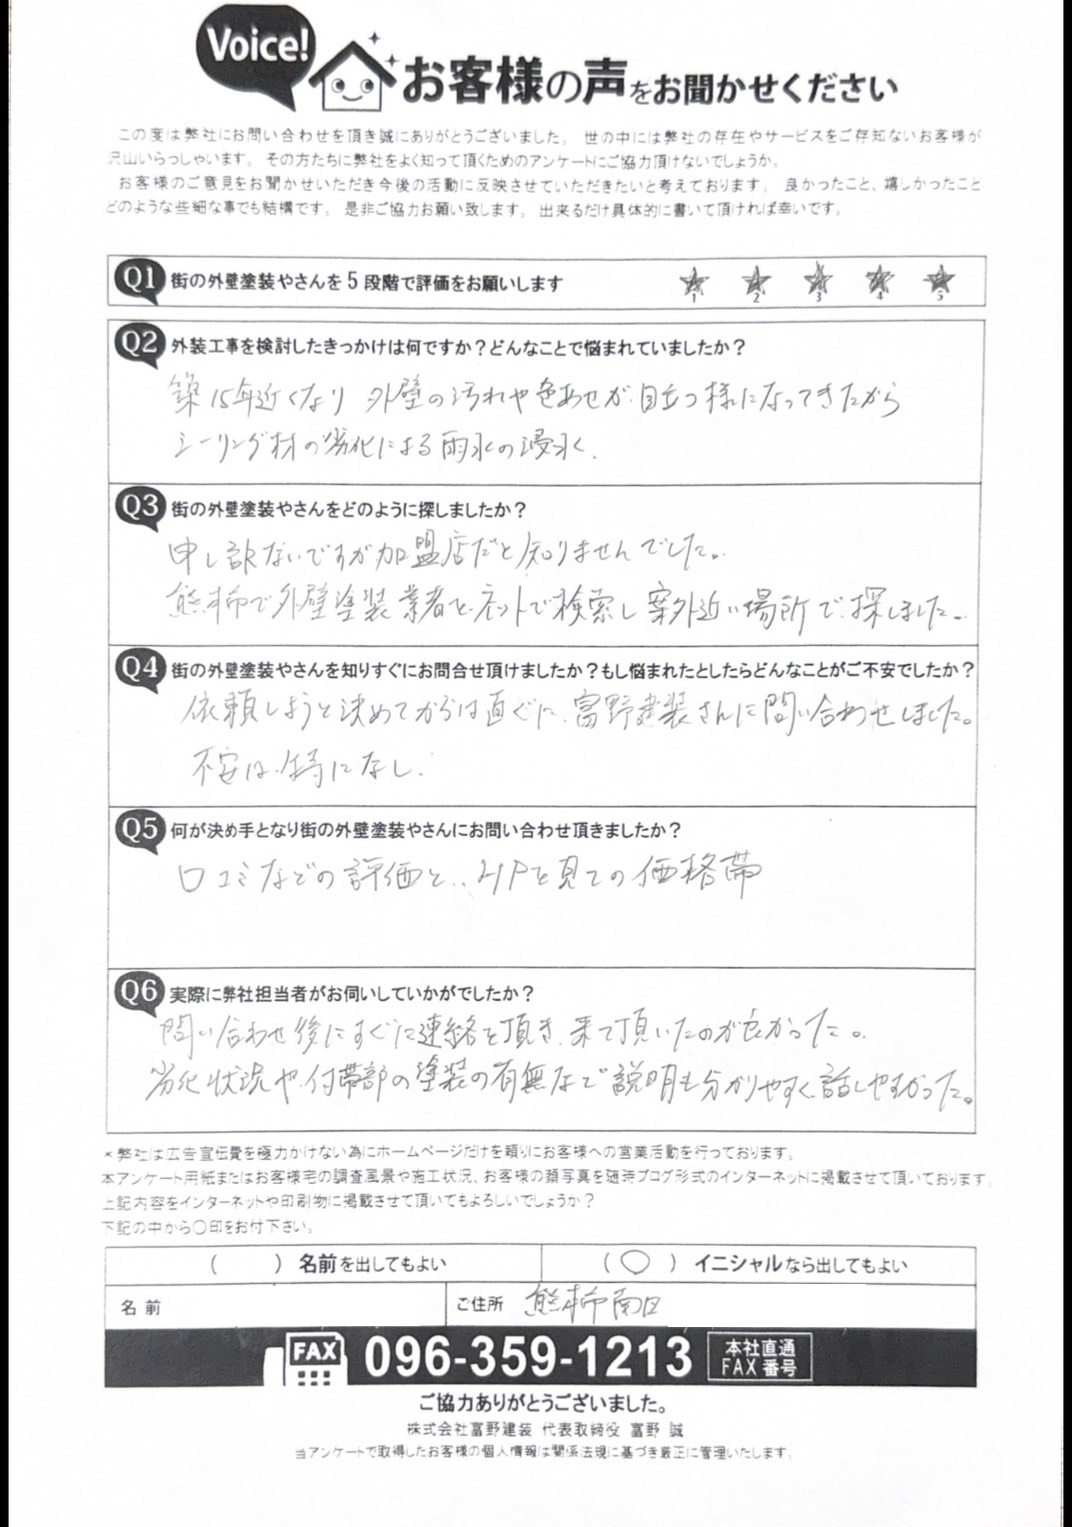 Voice!
お客様の声をお聞かせください
この度は弊社にお問い合わせを頂き誠にありがとうございました。 世の中には弊社の存在やサービスをご存知ないお客様が
沢山いらっしゃいます。 その方たちに弊社をよく知って頂くためのアンケートにご協力頂けないでしょうか。
お客様のご意見をお聞かせいただき今後の活動に反映させていただきたいと考えております。 良かったこと、嬉しかったこと
どのような些細な事でも結構です。 是非ご協力お願い致します。 出来るだけ具体的に書いて頂ければ幸いです。
Q1 街の外壁塗装やさんを5段階で評価をお願いします
1 2 3 4 5
Q2 外装工事を検討したきっかけは何ですか？どんなことで悩まれていましたか？
築15年近くなり 外壁の汚れや色あせが目立つ様になってきたから
シーリング材の劣化による雨水の浸水.
Q3 街の外壁塗装やさんをどのように探しましたか？
申し訳ないですが加盟店だと知りませんでした。
熊本市で外壁塗装業者を、ネットで検索し案外近い場所で探しました。
Q4 街の外壁塗装やさんを知りすぐにお問合せ頂けましたか？もし悩まれたとしたらどんなことがご不安でしたか？
依頼しようと決めてからは直ぐに、富野建装さんに問い合わせしました。
不安は、特になし.
Q5 何が決め手となり街の外壁塗装やさんにお問い合わせ頂きましたか？
口コミなどの評価と、HPを見ての価格帯
Q6 実際に弊社担当者がお伺いしていかがでしたか？
問い合わせ後にすぐに連絡を頂き、来て頂いたのが良かった。
劣化状況や、付帯部の塗装の有無など説明も分かりやすく、話しやすかった。
＊弊社は広告宣伝費を極力かけない為にホームページだけを頼りにお客様への営業活動を行っております。
本アンケート用紙またはお客様宅の調査風景や施工状況、お客様の顔写真を随時ブログ形式のインターネットに掲載させて頂いております。
上記内容をインターネットや印刷物に掲載させて頂いてもよろしいでしょうか？
下記の中から〇印をお付下さい。
（　　）名前を出してもよい （〇）イニシャルなら出してもよい
名前 ご住所 熊本市南区
FAX 096-359-1213 本社直通
FAX番号
ご協力ありがとうございました。
株式会社富野建装 代表取締役 富野 誠
当アンケートで取得したお客様の個人情報は関係法規に基づき厳正に管理いたします。